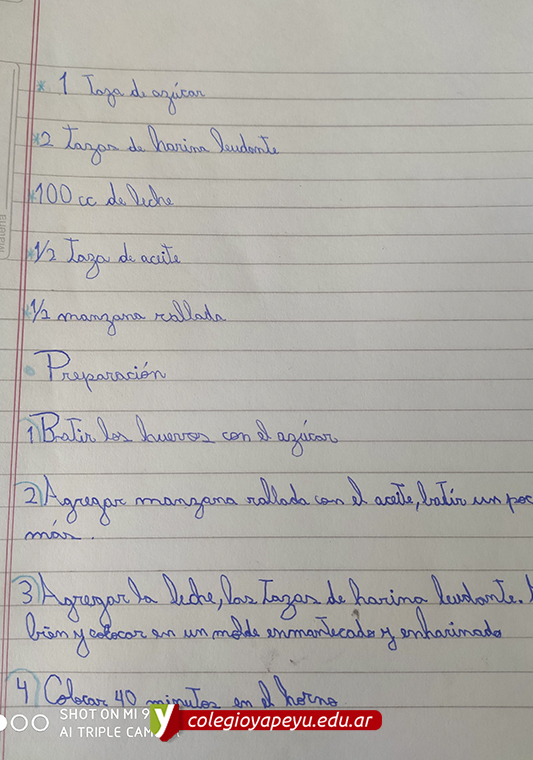 * 1 Taza de azúcar
*2 Tazas de harina leudante
*100 cc de leche
*1/2 Taza de aceite
*1/2 manzana rallada
• Preparación
1 Batir los huevos con el azúcar
2 Agregar manzana rallada con el aceite, batir un poc
más.
3 Agregar la leche, las Tazas de harina leudante.
bien y colocar en un molde enmantecado y enharinado
4 Colocar 40 minutos en el horno
SHOT ON MI 9
AI TRIPLE CAM
y colegioyapeyu.edu.ar